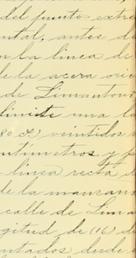 del punto extre
ntal, antes de
n la linea de
de la acera ori
de Limantour
limite una l
80 32) veintidos
ntimetros y p
linea recta
de la manzana
calle de Lima
gitud de (16) d
ntados desde